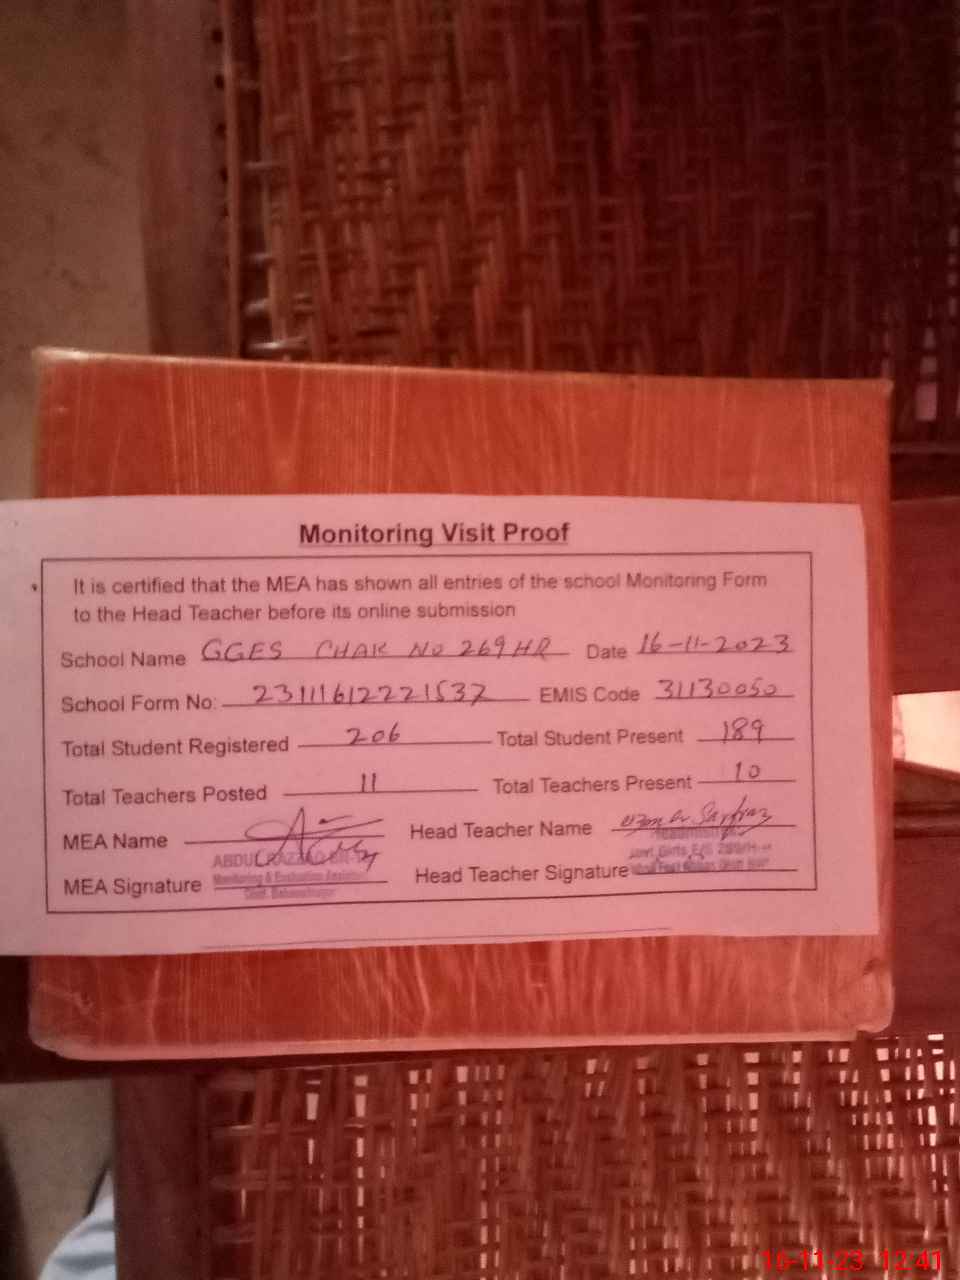 Monitoring Visit Proof
It is certified that the MEA has shown all entries of the school Monitoring Form
to the Head Teacher before its online submission
School Name GGES CHAK NO 269 HR Date 16-11-2023
School Form No: 23111612221537 EMIS Code 31130050
Total Student Registered 206 Total Student Present 189
Total Teachers Posted 11 Total Teachers Present 10
MEA Name Head Teacher Name Sarfraz
ABDUL RAZZAQ
MEA Signature Head Teacher Signature
Monitoring & Evaluation Assistant
Distt. Bahawalnagar
16-11-23 12:41